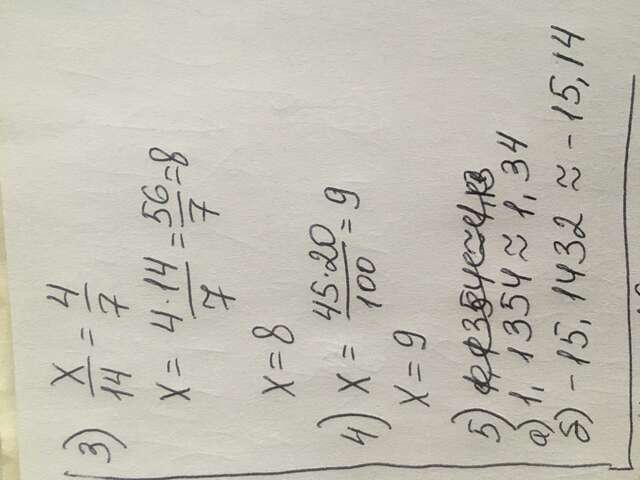 3) x/14 = 4/7
x = 4·14/7 = 56/7 = 8
x = 8
4) x = 45·20/100 = 9
x = 9
5)
а) 1,1354 ≈ 1,34
б) -15,1432 ≈ -15,14